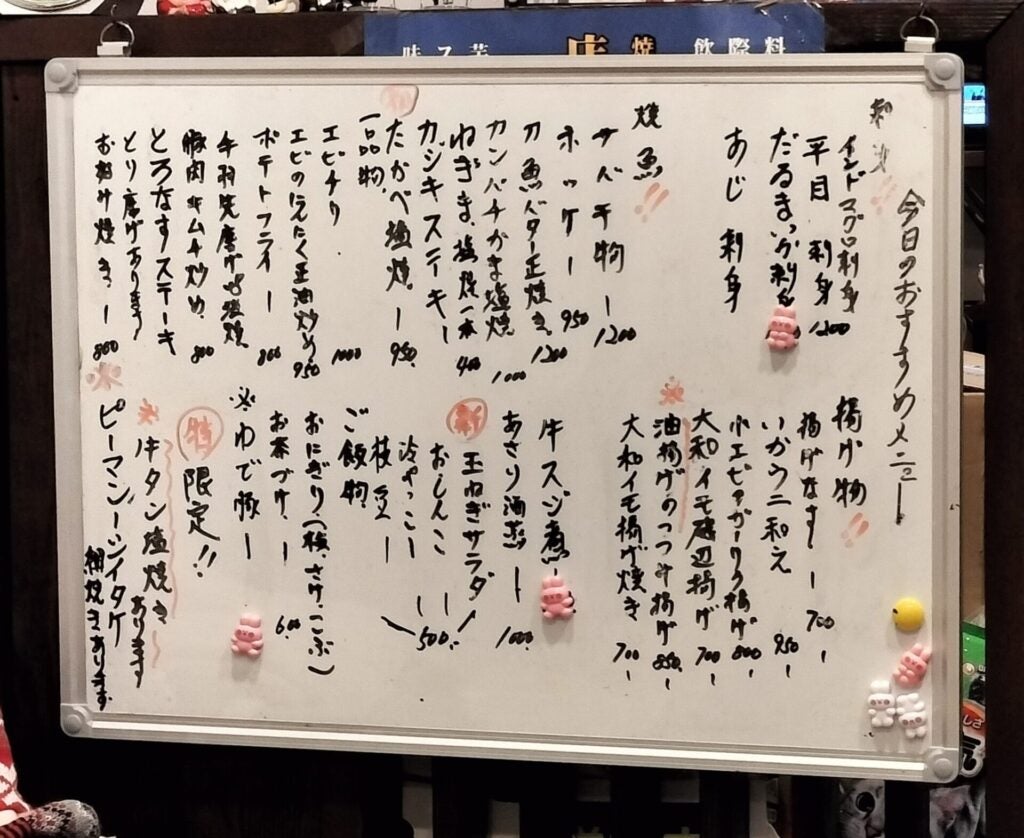 味 ス 芋
店 焼
飲 際 料
今日のおすすめメニュー
刺
インドマグロ刺身
平目 刺身 1200
だるまいか刺身
あじ 刺身
焼魚!!
サバ干物ー1200
ホッケー950
刀魚バター正焼き、1200
カンパチがま塩焼 1000
ねぎま、塩焼一本 400
カジキステーキー
たかべ塩焼。ー950.
一品物、
エビチリ 1000
エビのにんにく正油炒め 950
ポテトフライー 800
手羽先唐げ 塩焼、
豚肉キムチ炒め、800
とろなすステーキ
とり唐げあります
お好み焼きー800
揚げ物!!
揚げなすー700ー
いかウニ和え 950ー
小エビのガーリック揚げ 800ー
大和イモ磯辺揚げ 700ー
※油揚げのつつみ揚げ 850ー
大和イモ揚げ焼き 700ー
牛スジ煮ー
あさり酒蒸ー1000.
新 玉ねぎサラダ
おしんこー
冷やっこー 500.
枝豆
ご飯物、
おにぎり(梅、さけ、こぶ)
お茶づけ、ー600
※ゆで豚ー
特 限定!!
※牛タン塩焼きあります
※ピーマン、シイタケ
網焼きあります